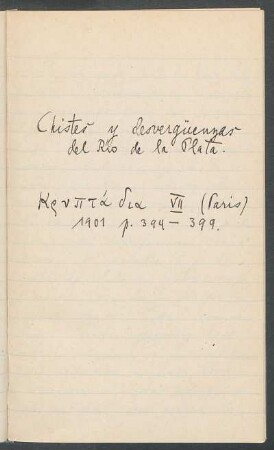 Chistes y desvergüenzas
del Rio de la Plata.
Κρυπτάδια VII (Paris)
1901 p. 394 — 399.